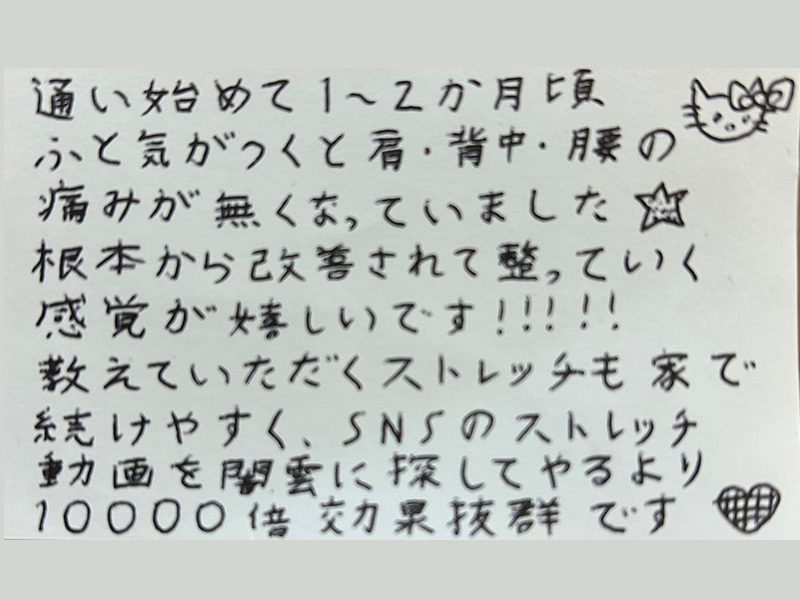 通い始めて1〜2か月頃
ふと気がつくと肩・背中・腰の
痛みが無くなっていました
根本から改善されて整っていく
感覚が嬉しいです!!!!!
教えていただくストレッチも家で
続けやすく、SNSのストレッチ
動画を闇雲に探してやるより
10000倍効果抜群です